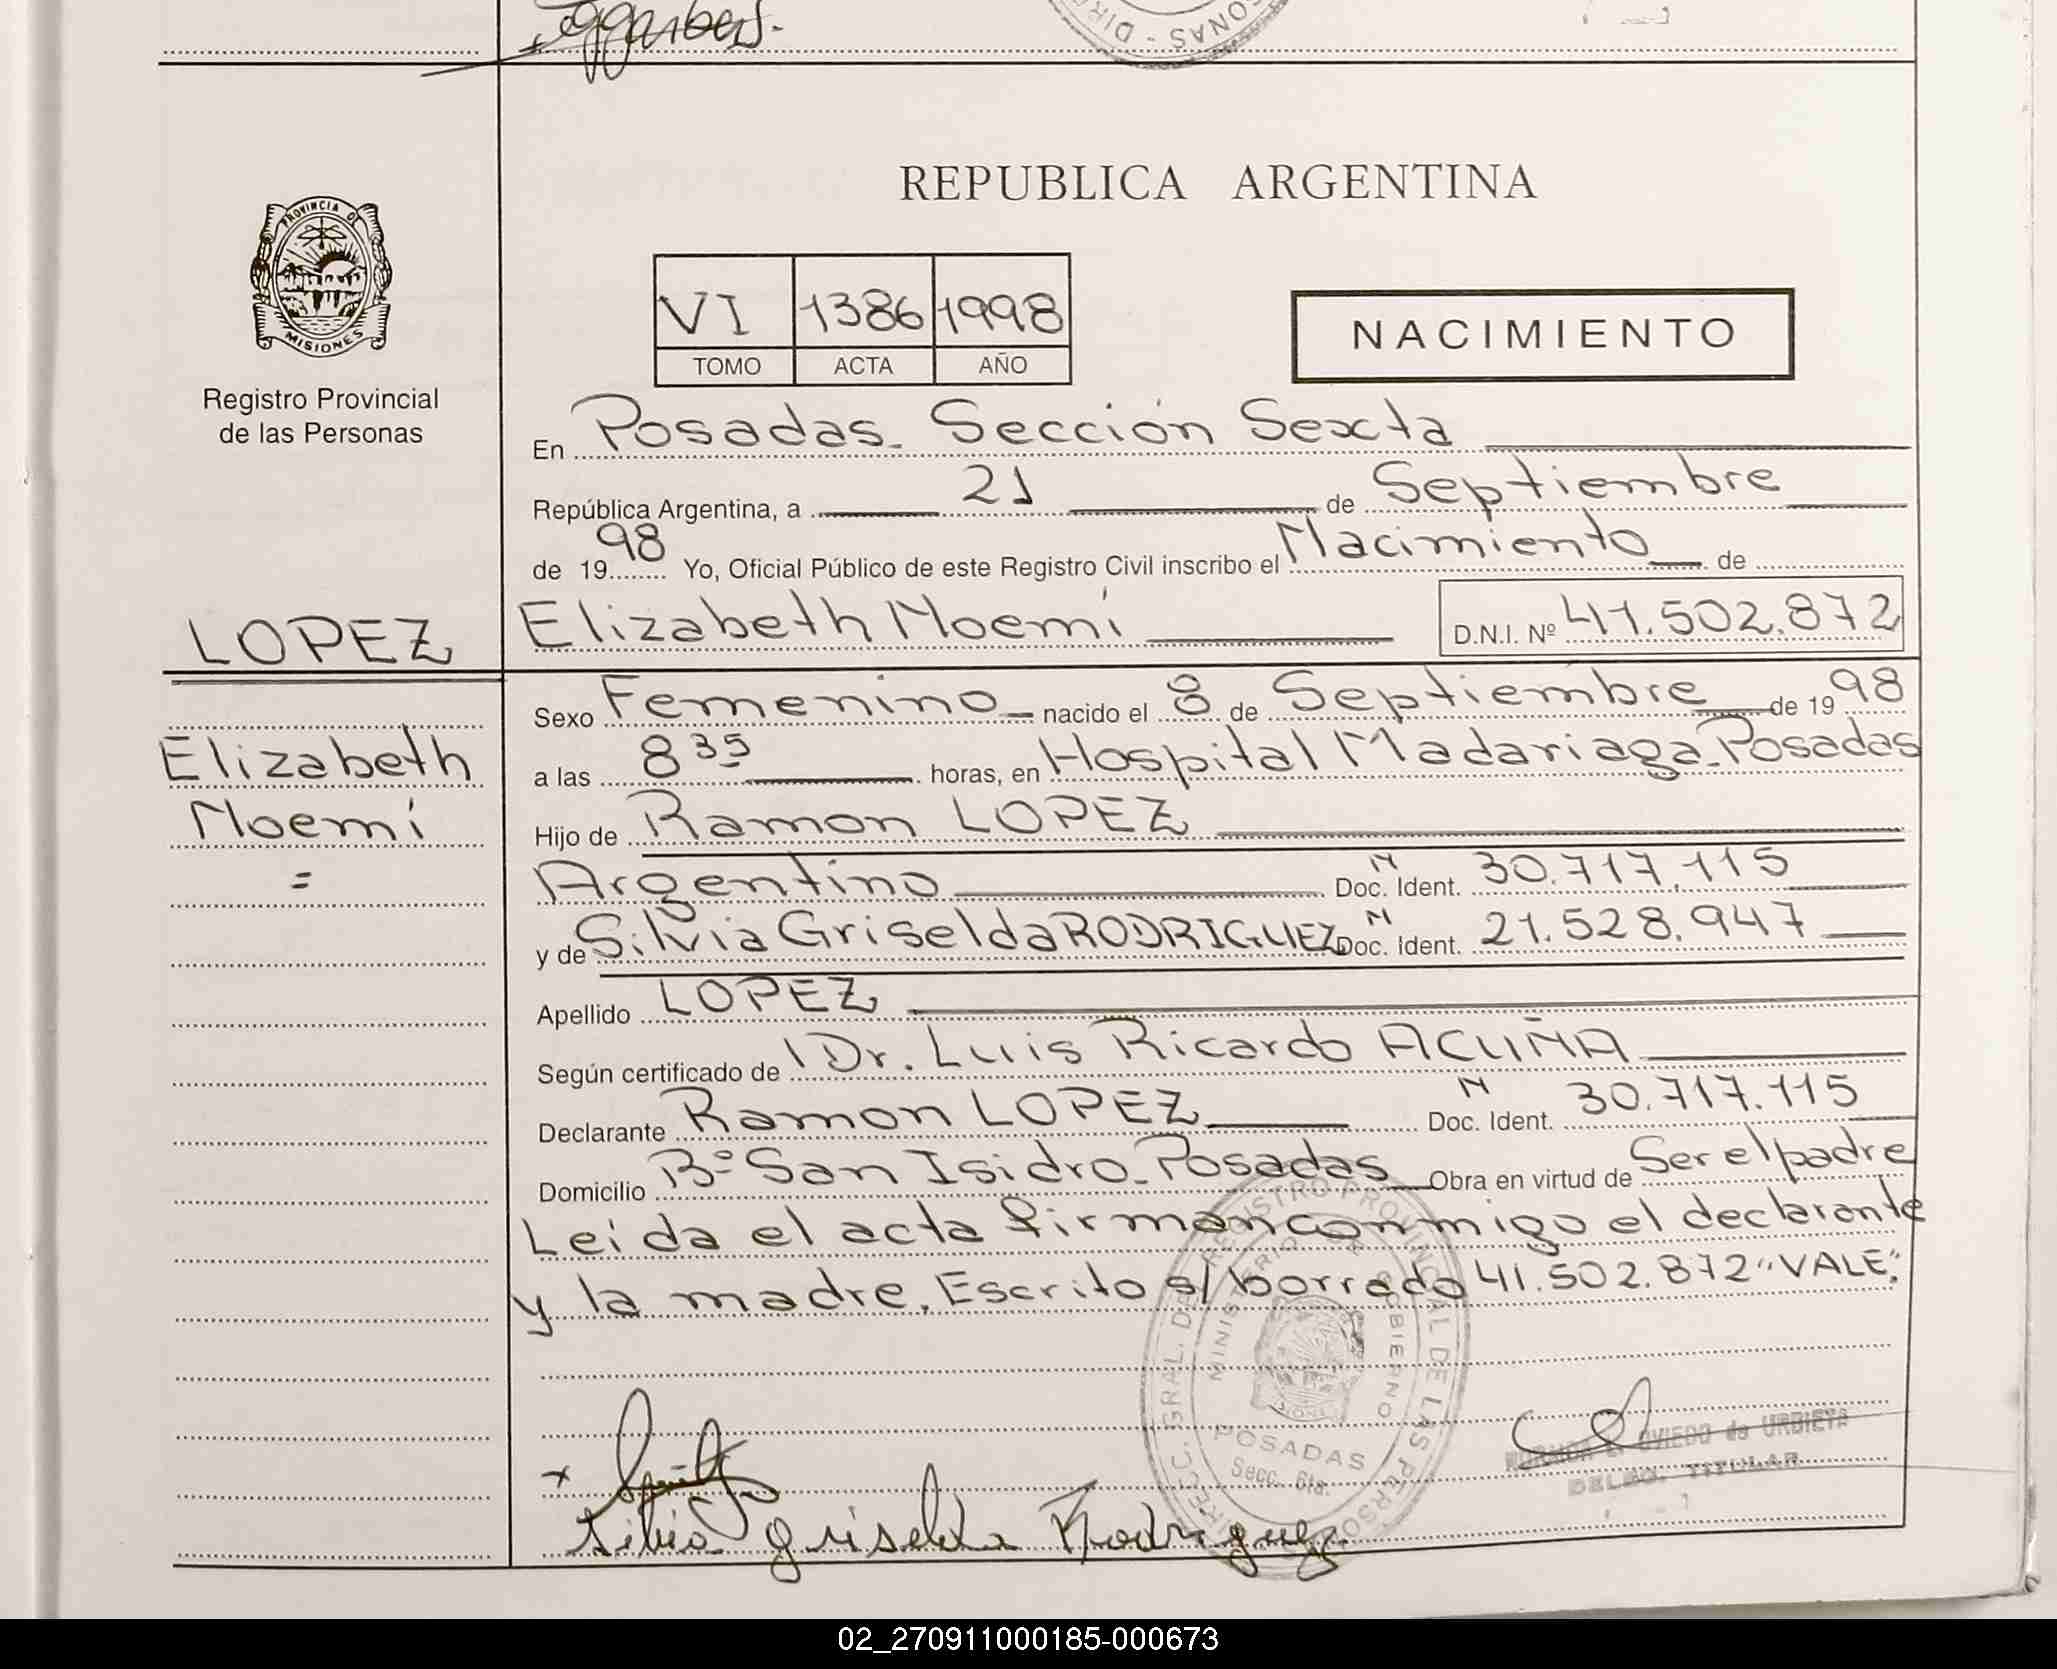 REPUBLICA ARGENTINA
PROVINCIA DE
MISIONES
Registro Provincial
de las Personas
VI 1386 1998
TOMO ACTA AÑO
NACIMIENTO
En Posadas. Sección Sexta
República Argentina, a 21 de Septiembre
de 1998 Yo, Oficial Público de este Registro Civil inscribo el Nacimiento de
LOPEZ Elizabeth Noemí D.N.I. Nº 41.502.872
Sexo Femenino nacido el 8 de Septiembre de 1998
Elizabeth a las 8 35 horas, en Hospital Madariaga-Posadas
Noemí Hijo de Ramon LOPEZ
= Argentino Doc. Ident. N 30.717.115
y de Silvia Griselda RODRIGUEZ Doc. Ident. N 21.528.947
Apellido LOPEZ
Según certificado de Dr. Luis Ricardo ACUÑA
Declarante Ramon LOPEZ Doc. Ident. N 30.717.115
Domicilio Bº San Isidro-Posadas Obra en virtud de Ser el padre
Leída el acta firman conmigo el declarante
y la madre. Escrito s/ borrado 41.502.872 "VALE".
REGISTRO PROVINCIAL DE LAS PERSONAS
MINISTERIO DE GOBIERNO
POSADAS
Secc. 6ta.
OVIEDO de URBIETA
DELEG. TITULAR
Silvia Griselda Rodriguez
02_270911000185-000673